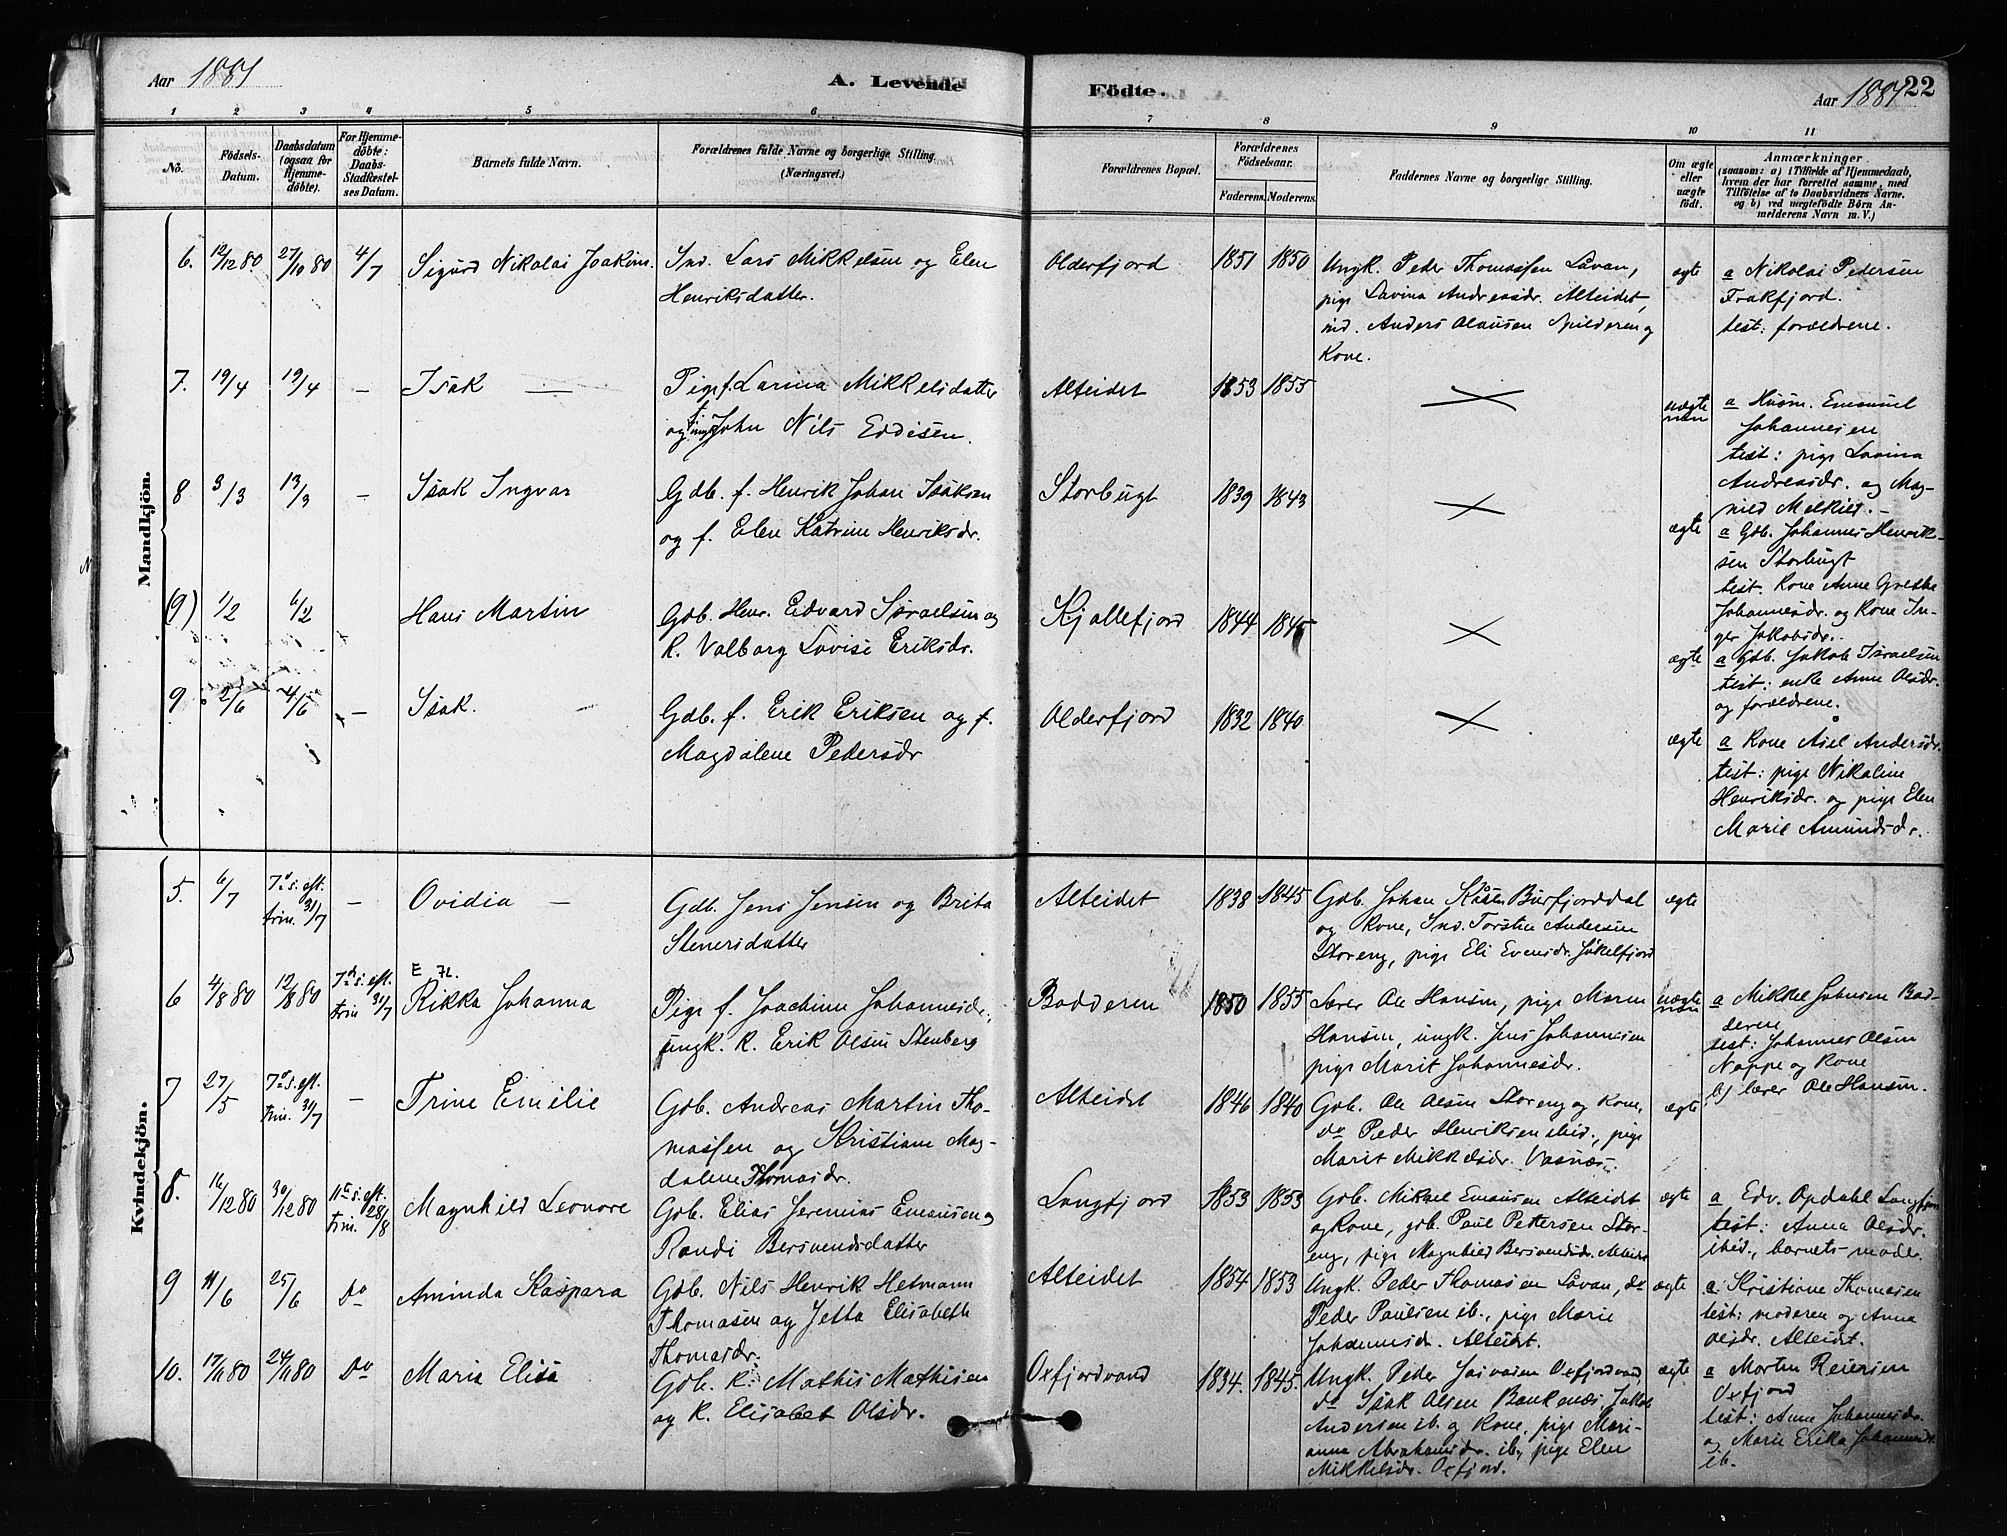 Aar 1881
A. Levende
Födte.
Aar 1881
22
1 2 3 4 5 6 7 8 9 10 11
No.
Födsels-
Datum.
Daabsdatum
(ogsaa for
Hjemme-
döbte).
For Hjemme-
döbte:
Daabs-
Stadfæstel-
ses Datum.
Barnets fulde Navn.
Forældrenes fulde Navne og borgerlige Stilling.
(Næringsvei.)
Forældrenes Bopæl.
Forældrenes
Födselsaar.
Faderens. Moderens.
Faddernes Navne og borgerlige Stilling.
Om ægte
eller
uægte
födt.
Anmærkninger
(saasom: a) i Tilfælde af Hjemmedaab,
hvem der har forrettet samme, med
Tilföielse af to Daabsvidners Navne.
og b) ved uægtefödte Börn An-
melderens Navn m. V.)
Mandkjön.
6. 12/12 80 27/10 80 4/7 Sigurd Nikolai Joakim. Ind. Lars Mikkelsen og Elen
Henriksdatter.
Olderfjord 1851 1850 Ungk. Peder Thomassen Låvan,
pige Lavina Andreasdr. Alteidet,
ind. Anders Olausen Spilderen og
Kone.
ægte
a Nikolai Pedersen
Frakfjord.
test: forældrene.
7. 19/4 19/4 – Isak – Pige f. Larina Mikkelsdatter
og ungk John Nils Eddisen.
Alteidet 1853 1855
uægte
a Husm. Emanuel
Johannesen
test: pige Lavina
Andreasdr. og Mag-
nild Melkild. –
8 3/3 13/3 – Isak Ingvar Gdb. f. Henrik Johan Isaksen
og f. Elen Katrine Henriksdr.
Storbugt 1839 1843
ægte
a Gdb. Johannes Henrik-
sen Storbugt
test. Kone Anne Grethe
Johannesdr. og Kone In-
ger Jakobsdr.
(9) 1/2 6/2 Hans Martin Gdb. Henr. Edvard Israelsen og
K. Valborg Lovise Eriksdr.
Kjollefjord 1844 1845
ægte
a Gdb. Jakob Israelsen
test: enke Anne Olsdr.
og forældrene.
9 2/6 4/6 – Isak. – Gdb. f. Erik Eriksen og f.
Magdalene Pedersdr
Olderfjord 1832 1840
ægte
a Kone Asel Andersdr.
test: pige Nikoline
Henriksdr. og pige Elen
Marie Amundsdr.
Kvindekjön.
5. 6/7 7 d s. eft.
trin. 31/7 – Ovidia – Gdb. Jens Jensen og Brita
Stenersdatter
Alteidet 1838 1845 Gdb. Johan Kåsen Burfjorddal
og Kone, Ind. Torsten Andersen
Storeng, pige Eli Evensdr. Jökelfjord
ægte
6 4/8 80 12/8 80 7de s. eft.
trin 31/7 Rikka Johanna Pige f. Joachine Johannesdr.,
ungk. K. Erik Olsen Stenberg
Badderen 1850 1855 Lærer Ole Hansen, pige Maren
Hansen, ungk. Jens Johannesen
pige Marit Johannesdr.
uægte
a Mikkel Johnsen Bad-
deren
test: Johannes Olsen
Nappe og Kone
b) lærer Ole Hansen.
7 27/5 7 d s. eft.
trin. 31/7 – Trine Emilie Gdb. Andreas Martin Tho-
massen og Kristiane Mag-
dalene Thomasdr.
Alteidet 1846 1840 Gdb. Ole Olsen Storeng og Kone,
do Peder Henriksen ibid., pige
Marit Mikkelsdr. Vasnæs.
ægte
8. 16/12 80 30/12 80 11te s. eft.
trin. 28/8 Magnhild Leonore Gdb. Elias Jeremias Emausen og
Randi Bersvendsdatter
Langfjord 1853 1853 Gdb. Mikael Emausen Alteidet
og Kone, gdb. Paul Pettersen Stor-
eng, pige Magnhild Bersvendsdr. Alteidet
ægte
a Edv. Opdahl Langfjord
test: Anna Olsdr.
ibid., barnets moder
9 11/6 25/6 Do Aminda Kaspara Gdb. Nils Henrik Hetmann
Thomasen og Jetta Elisabeth
Thomasdr.
Alteidet 1854 1853 Ungk. Peder Thomasen Låvan, do
Peder Paulsen ib., pige Marie
Johannesdr. Alteidet.
ægte
a: Kristiane Thomasen
test: moderen og Anna
Olsdr. Alteidet.
10. 17/11 80 24/11 80 Do Marie Elisa Gdb. K. Mathis Mathisen
og K. Elisabet Olsdr.
Oxfjordvand 1834. 1845. Ungk. Peder Oxfjordvand,
do Isak Olsen Bankenæs, Jakob
Andersen ib. og Kone, pige Mari-
anna Abrahamsdr. ib., pige Elen
Mikkelsdr. Oxfjord.
ægte
a Morten Reiersen
Oxfjord
test: Anne Johannesdr.
og Marie Erika Johannesdr.
ib.